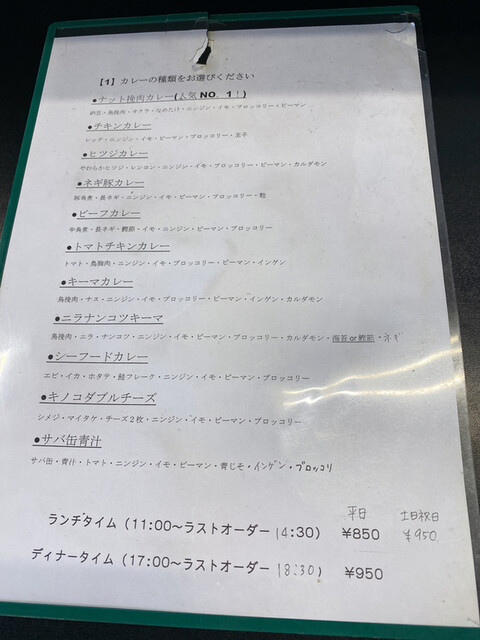 【1】カレーの種類をお選びください
●ナット挽肉カレー(人気NO．1！)
納豆・鳥挽肉・オクラ・なめたけ・ニンジン・イモ・ブロッコリー・ピーマン
●チキンカレー
レッグ・ニンジン・イモ・ピーマン・ブロッコリー・玉子
●ヒツジカレー
やわらかヒツジ・レンコン・ニンジン・イモ・ブロッコリー・ピーマン・カルダモン
●ネギ豚カレー
豚角煮・長ネギ・ニンジン・イモ・ピーマン・ブロッコリー・麩
●ビーフカレー
牛角煮・長ネギ・鰹節・イモ・ニンジン・ピーマン・ブロッコリー
●トマトチキンカレー
トマト・鳥胸肉・ニンジン・イモ・ブロッコリー・ピーマン・インゲン
●キーマカレー
鳥挽肉・ナス・ニンジン・イモ・ブロッコリー・ピーマン・インゲン・カルダモン
●ニラナンコツキーマ
鳥挽肉・ニラ・ナンコツ・ニンジン・イモ・ピーマン・ブロッコリー・カルダモン・海苔or鰹節・ネギ
●シーフードカレー
エビ・イカ・ホタテ・鮭フレーク・ニンジン・イモ・ピーマン・ブロッコリー
●キノコダブルチーズ
シメジ・マイタケ・チーズ２枚・ニンジン・イモ・ピーマン・ブロッコリー
●サバ缶青汁
サバ缶・青汁・トマト・ニンジン・イモ・ピーマン・青じそ・インゲン・ブロッコリ
平日 土日祝日
ランチタイム（11:00～ラストオーダー14:30） ¥850 ¥950
ディナータイム（17:00～ラストオーダー18:30） ¥950